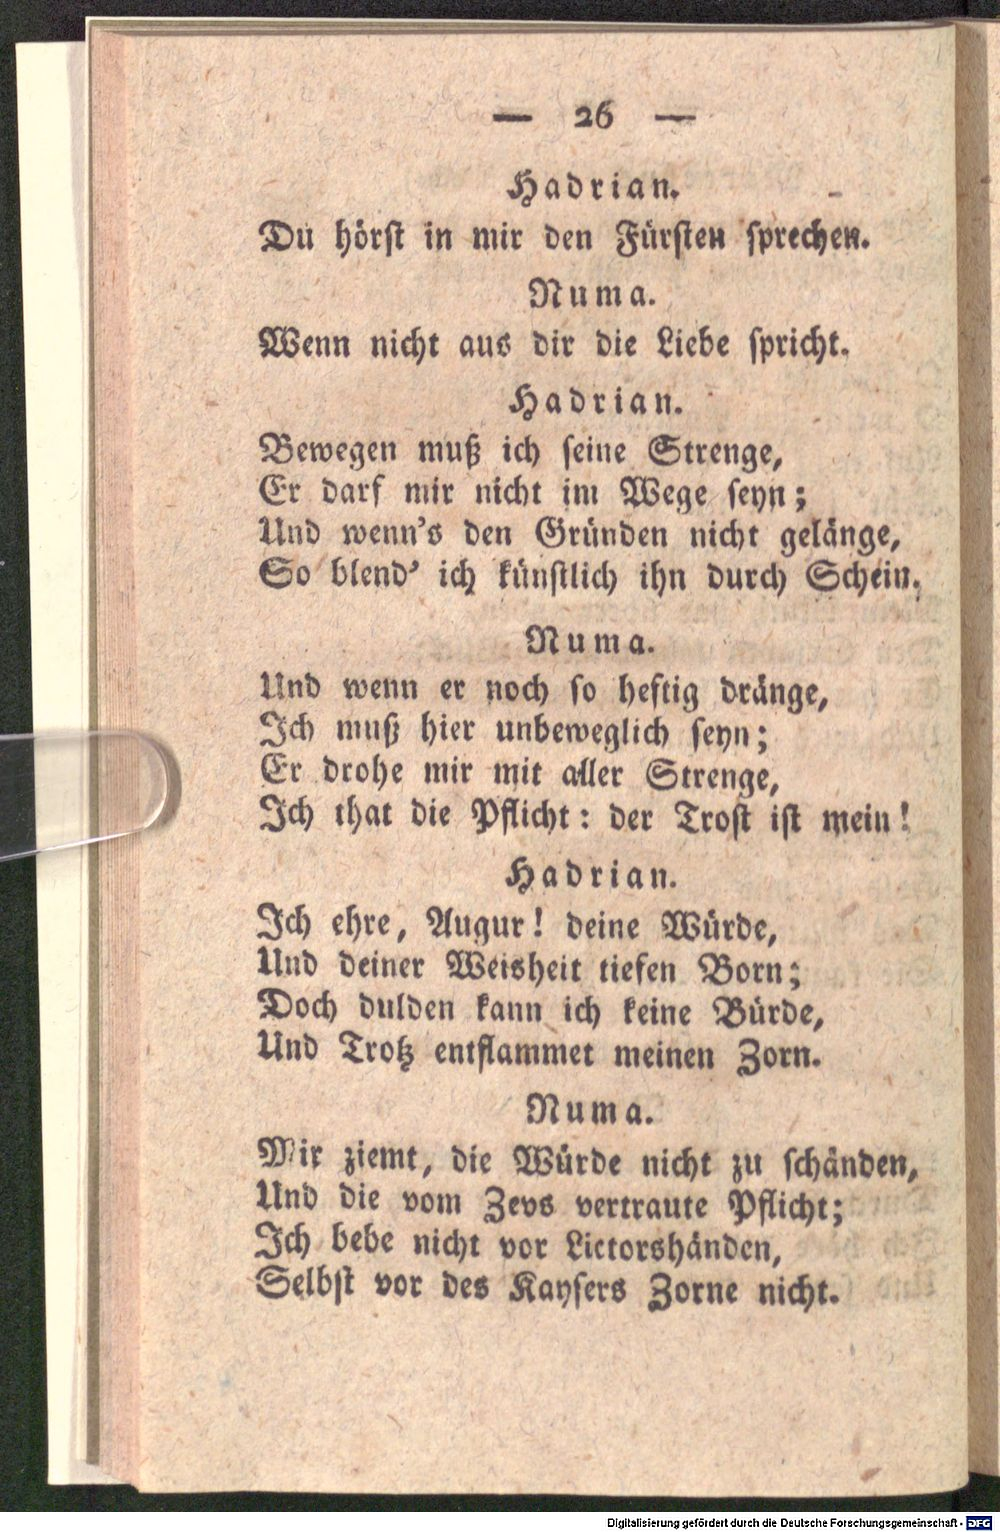 — 26 —
Hadrian.
Du hörst in mir den Fürsten sprechen.
Numa.
Wenn nicht aus dir die Liebe spricht.
Hadrian.
Bewegen muß ich seine Strenge,
Er darf mir nicht im Wege seyn;
Und wenn's den Gründen nicht gelänge,
So blend' ich künstlich ihn durch Schein.
Numa.
Und wenn er noch so heftig dränge,
Ich muß hier unbeweglich seyn;
Er drohe mir mit aller Strenge,
Ich that die Pflicht: der Trost ist mein!
Hadrian.
Ich ehre, Augur! deine Würde,
Und deiner Weisheit tiefen Born;
Doch dulden kann ich keine Bürde,
Und Trotz entflammet meinen Zorn.
Numa.
Mir ziemt, die Würde nicht zu schänden,
Und die vom Zevs vertraute Pflicht;
Ich bebe nicht vor Lictorshänden,
Selbst vor des Kaysers Zorne nicht.
Digitalisierung gefördert durch die Deutsche Forschungsgemeinschaft - DFG